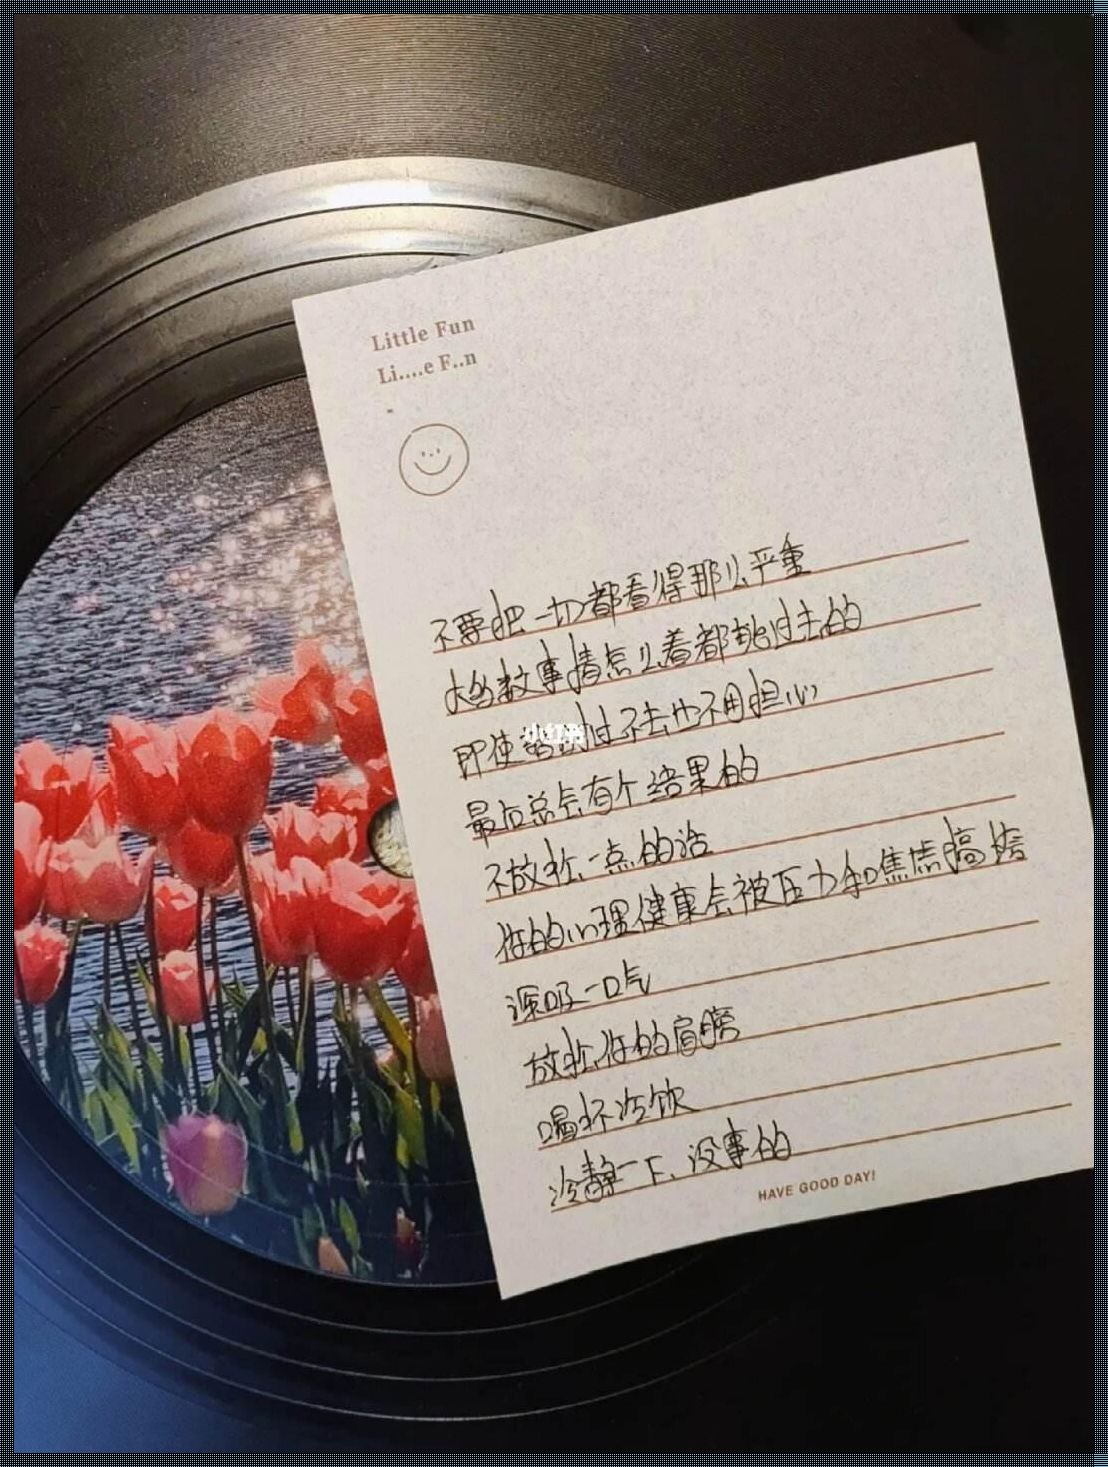 Little Fun
Li....e F..n
不要把一切都看得那么严重
大多数事情怎么着都能过去的
即使 过不去也不用担心
最后总会有个结果的
不放松一点的话
你的心理健康会被压力和焦虑搞垮
深吸一口气
放松你的肩膀
喝杯冷饮
冷静一下、没事的
HAVE GOOD DAY!
小红书